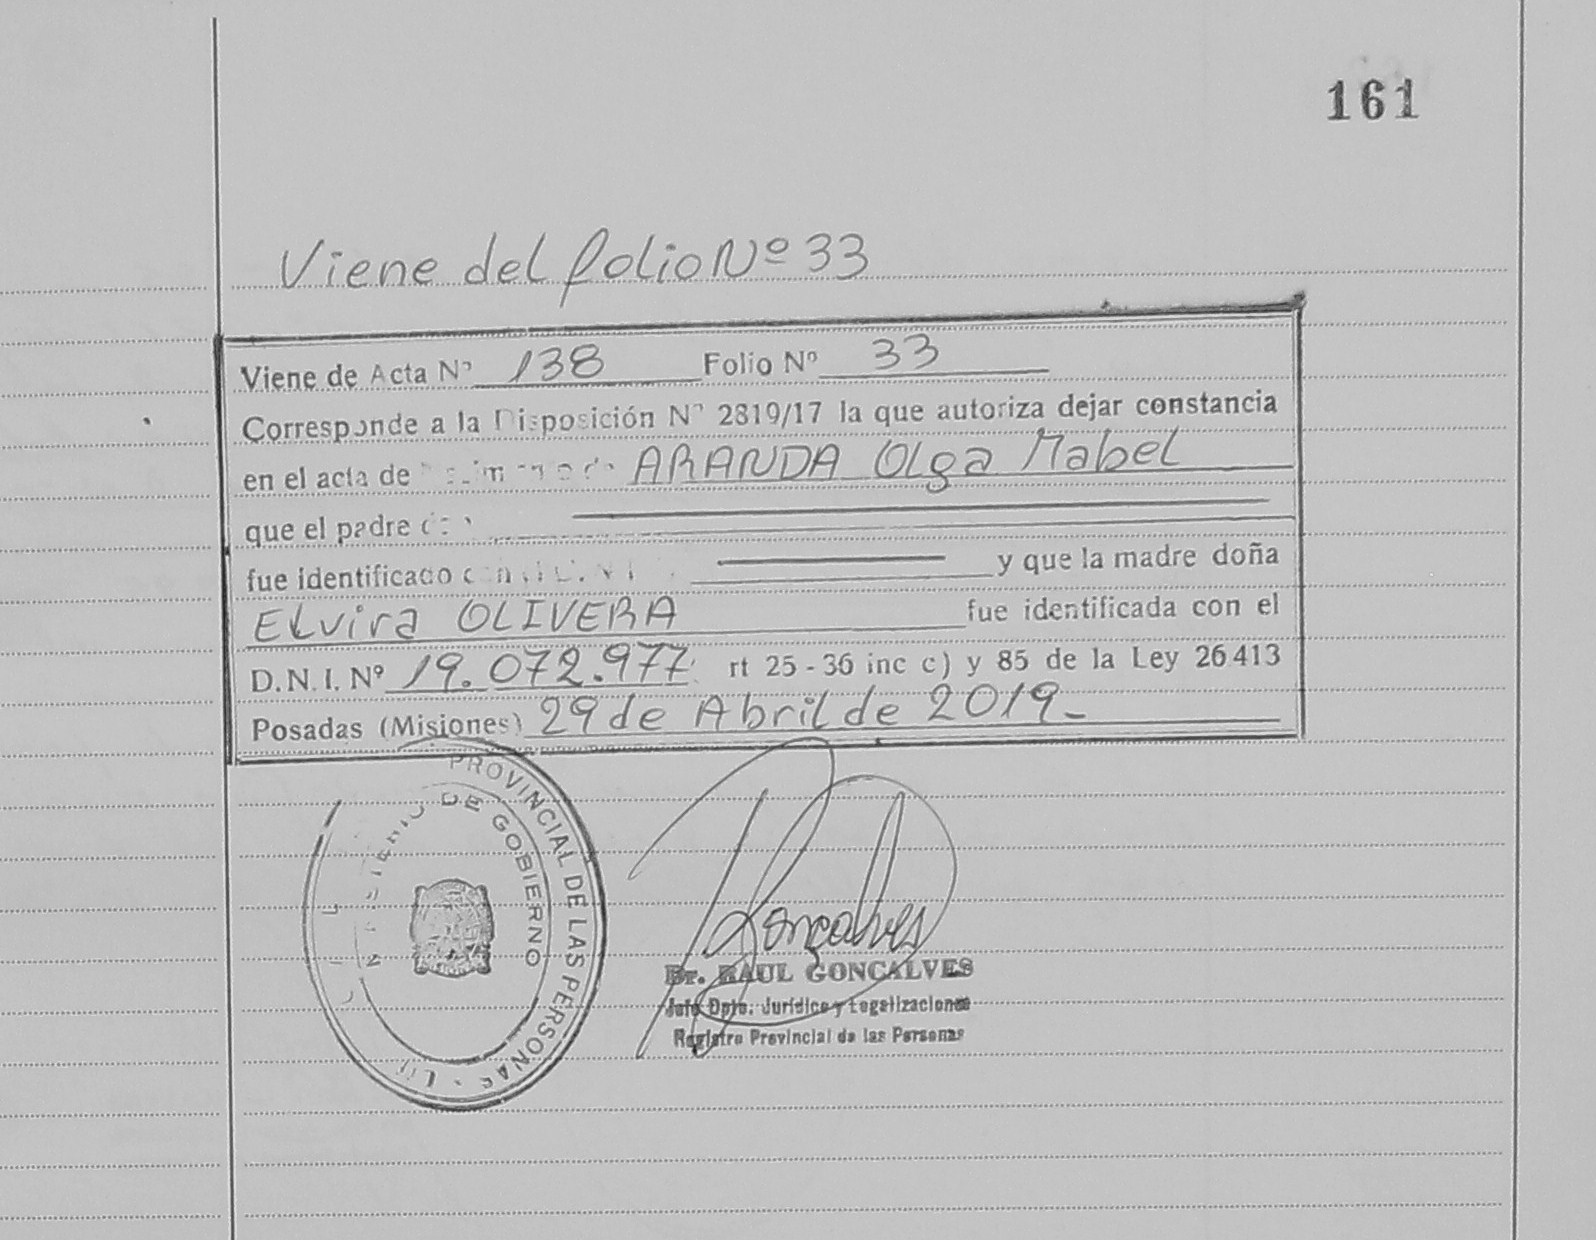 161
Viene del folio Nº 33
Viene de Acta Nº 138 Folio Nº 33
Corresponde a la Disposición Nº 2819/17 la que autoriza dejar constancia
en el acta de ARANDA Olga Mabel
que el padre
fue identificado y que la madre doña
Elvira OLIVERA fue identificada con el
D.N.I. Nº 19.072.977 rt 25 - 36 inc c) y 85 de la Ley 26413
Posadas (Misiones) 29 de Abril de 2019_
PROVINCIAL DE LAS PERSONAS
DE GOBIERNO
Goncalves
Dr. RAUL GONCALVES
Jefe Dpto. Jurídico y Legalizaciones
Registro Provincial de las Personas